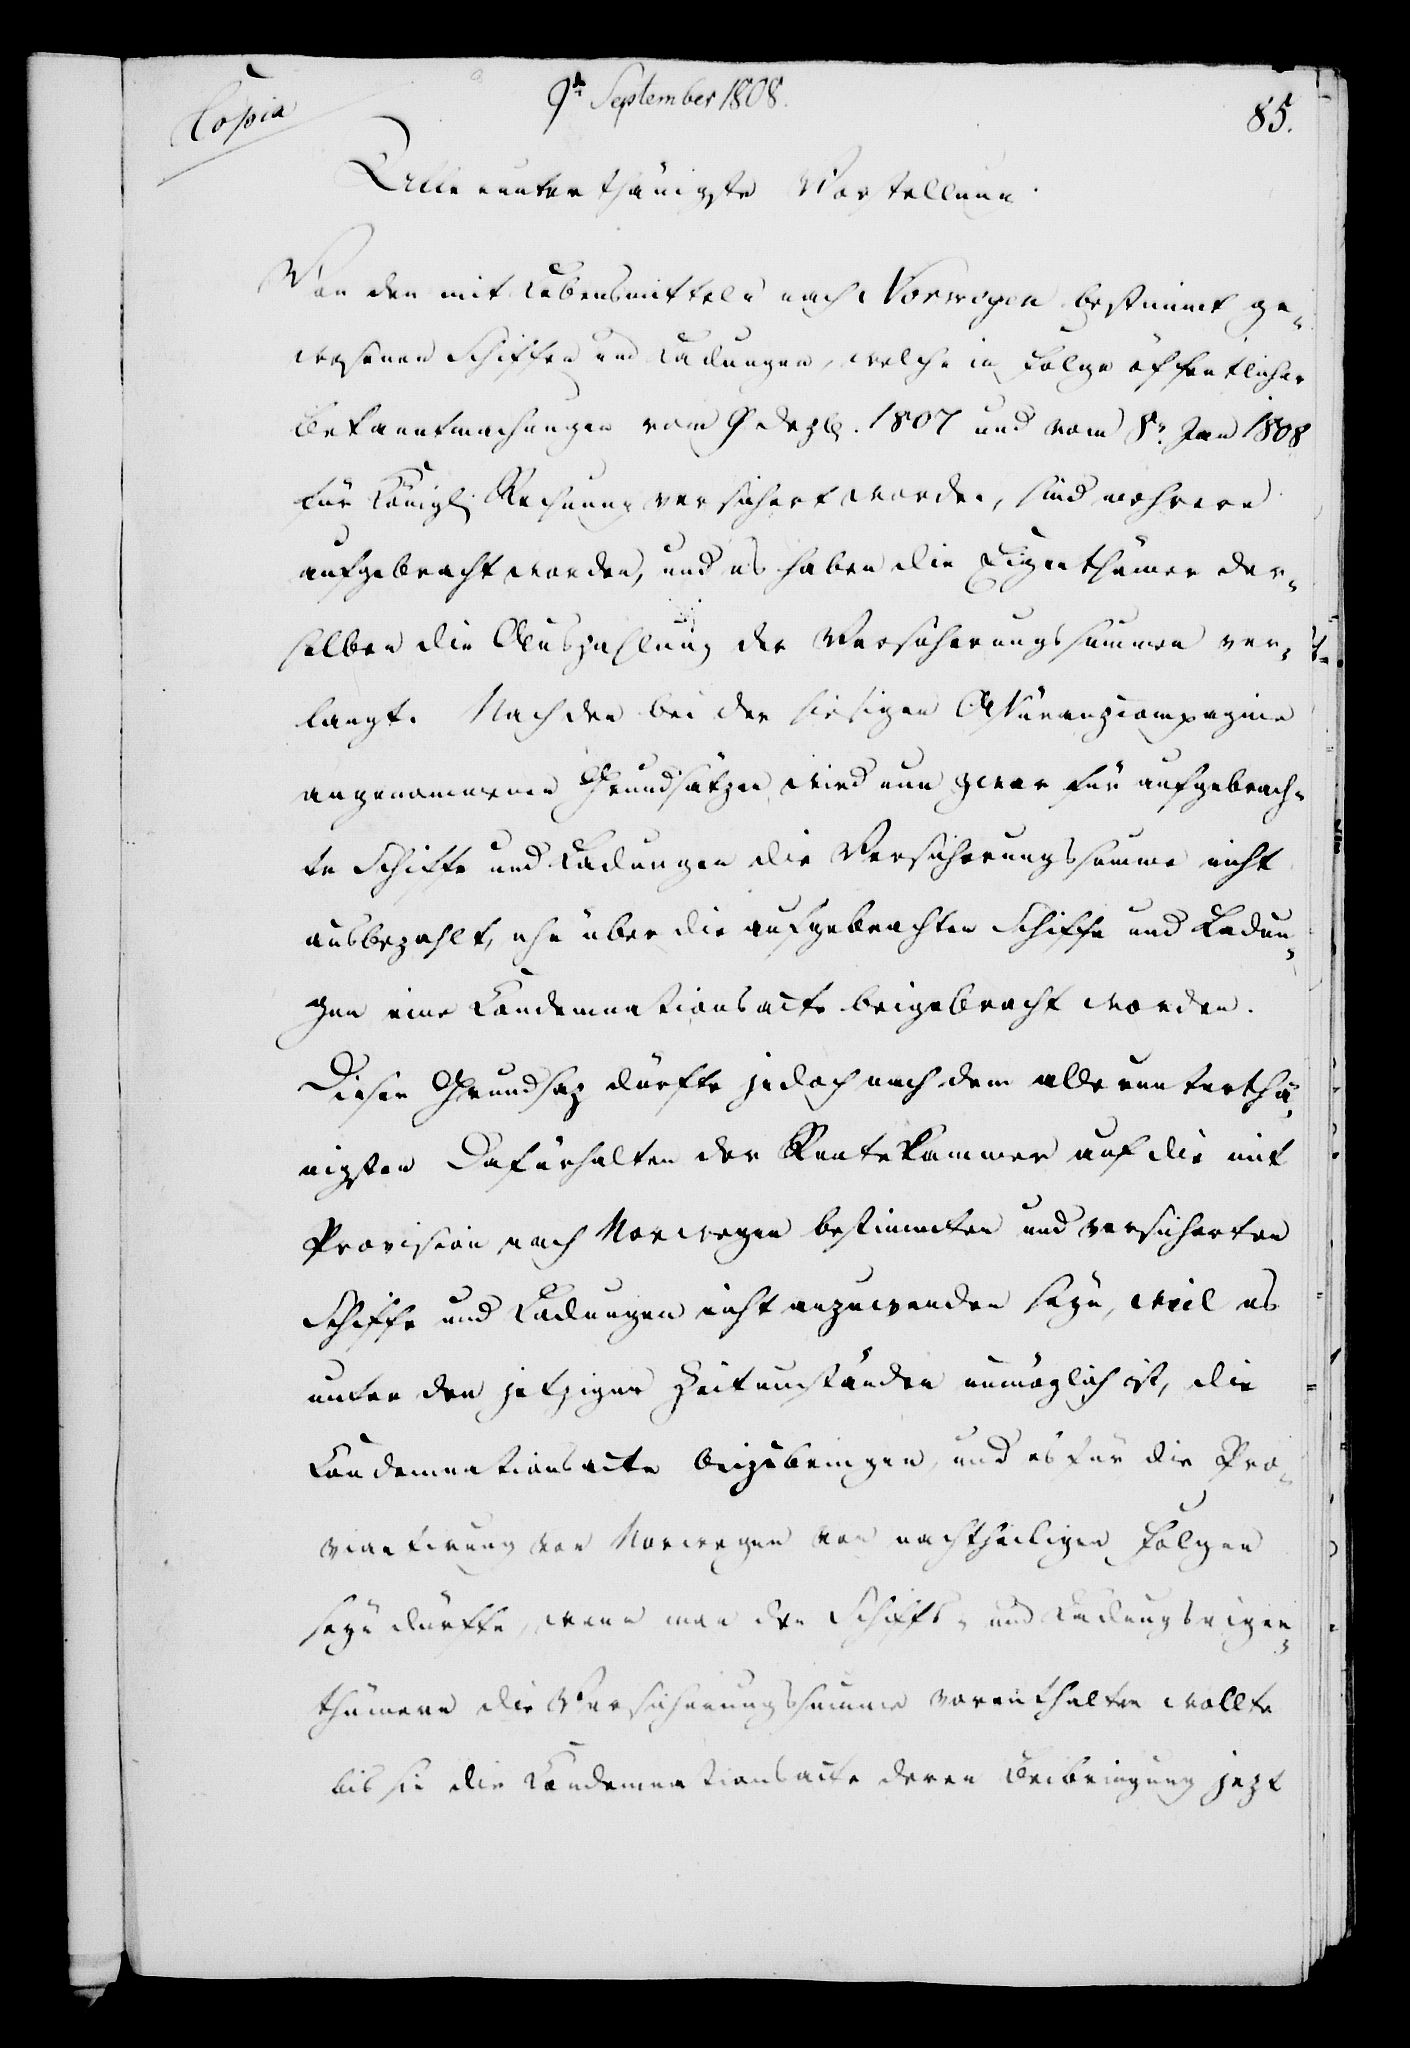 Copia
9t September 1808.
85.
Allerunterthänigste Vorstellung.
Von den mit Lebensmitteln nach Norwegen bestimmt ge-
wesenen Schiffen und Ladungen, welche in Folge öffentlicher
Bekanntmachungen vom 9 Dezb. 1807 und vom 8n Jan 1808
für Königl. Rechnung versichert worden, sind mehrere
aufgebracht worden, und es haben die Eigenthümer der-
selben die Auszahlung der Versicherungssummen ver-
langt. Nach den bei der hiesigen Assuranzcompagnie
angenommenen Grundsätzen wird nun zwar für aufgebrach-
te Schiffe und Ladungen die Versicherungssumme nicht
ausbezahlt, ehe über die aufgebrachten Schiffe und Ladun-
gen eine Condemnationsacte beigebracht worden.
Dieser Grundsaz dürfte jedoch nach dem allerunterthä-
nigsten Dafürhalten der Rentekammer auf die mit
Provision nach Norwegen bestimmten und versicherten
Schiffe und Ladungen nicht anzuwenden seyn, weil es
unter den jetzigen Zeitumständen unmöglich ist, die
Condemnationsacte beizubringen, und es für die Pro-
viantirung von Norwegen von nachtheiligen Folgen
seyn dürfte, wenn man den Schiffs- und Ladungseigen-
thümern die Versicherungssumme vorenthalten wollte
bis sie die Condemnationsacte deren Beibringung jezt